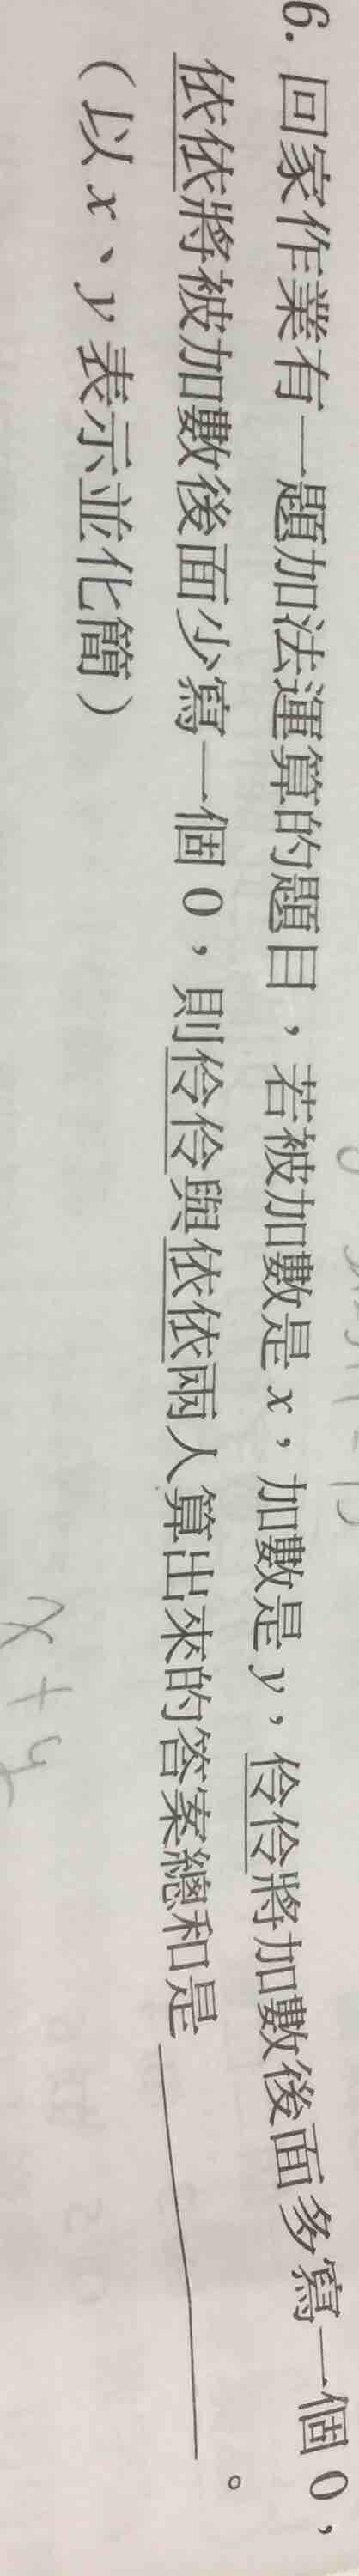 6. 回家作業有一題加法運算的題目，若被加數是 x，加數是 y，伶伶將加數後面多寫一個 0，
依依將被加數後面少寫一個 0，則伶伶與依依兩人算出來的答案總和是＿＿＿＿＿＿。
（以 x、y 表示並化簡）
x+y